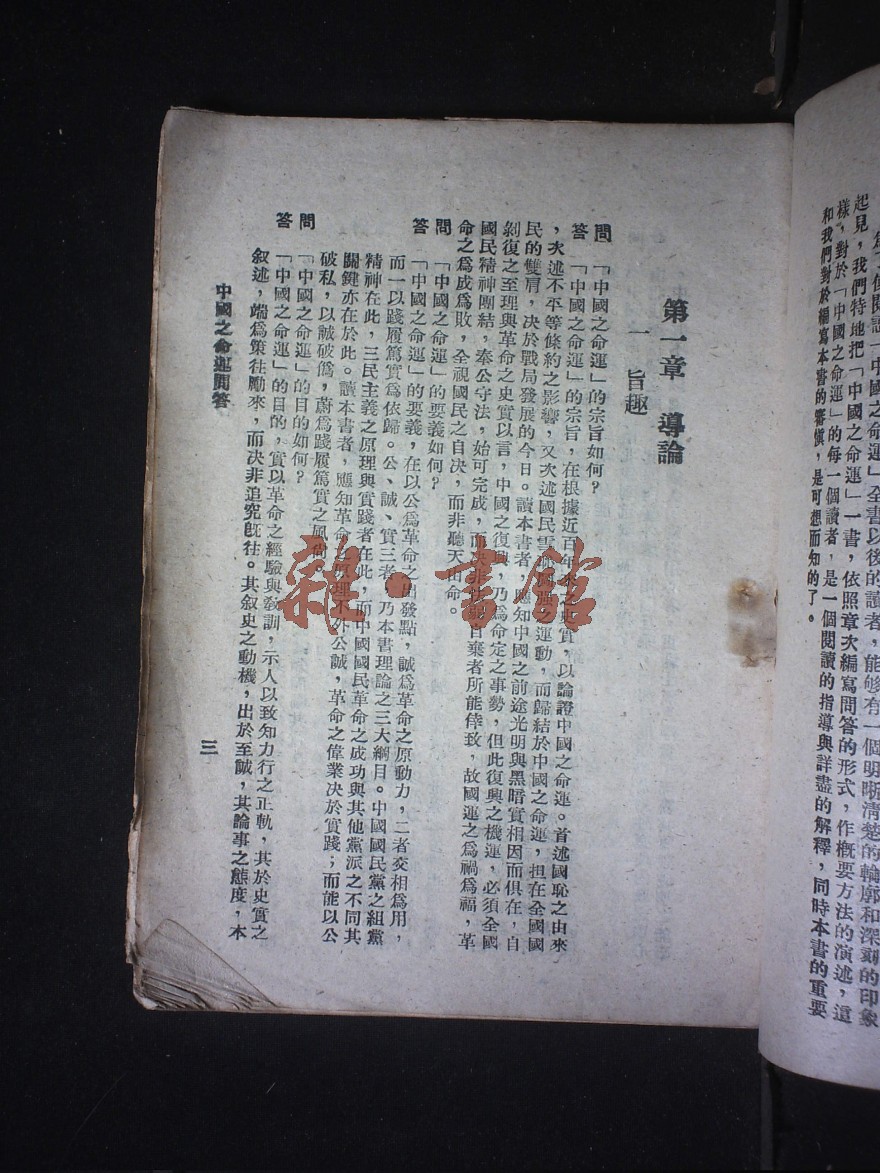 爲了使閱讀「中國之命運」全書以後的讀者，能够有一個明晰清楚的輪廓和深刻的印象
起見，我們特地把「中國之命運」一書，依照章次編寫問答的形式，作概要方法的演述，這
樣，對於「中國之命運」的每一個讀者，是一個閱讀的指導與詳盡的解釋，同時本書的重要
和我們對於編寫本書的審愼，是可想而知的了。
第一章　導論
一　旨趣
問　「中國之命運」的宗旨如何？
答　「中國之命運」的宗旨，在根據近百年來之史實，以論證中國之命運。首述國恥之由來
，次述不平等條約之影響，又次述國民雪恥圖强之運動，而歸結於中國之命運，担在全國國
民的雙肩，决於戰局發展的今日。讀本書者，應知中國之前途光明與黑暗實相因而俱在，自
剝復之至理與革命之史實以言，中國之復興，乃爲命定之事勢，但此復興之機運，必須全國
國民精神團結，奉公守法，始可完成，而决非自棄者所能倖致，故國運之爲禍爲福，革
命之爲成爲敗，全視國民之自决，而非聽天由命。
問　「中國之命運」的要義如何？
答　「中國之命運」的要義，在以公爲革命之出發點，誠爲革命之原動力，二者交相爲用，
而一以踐履篤實爲依歸。公、誠、實三者，乃本書理論之三大綱目。中國國民黨之組黨
精神在此，三民主義之原理與實踐者在此，而中國國民革命之成功與其他黨派之不同其
關鍵亦在於此。讀本書者，應知革命之原理不外公誠，革命之偉業决於實踐；而能以公
破私，以誠破僞，蔚爲踐履篤實之風尚。
問　「中國之命運」的目的如何？
答　「中國之命運」的目的，實以革命之經驗與教訓，示人以致知力行之正軌，其於史實之
叙述，端爲策往勵來，而决非追究旣往。其叙史之動機，出於至誠，其論事之態度，本
中國之命運問答
三
雜·書館